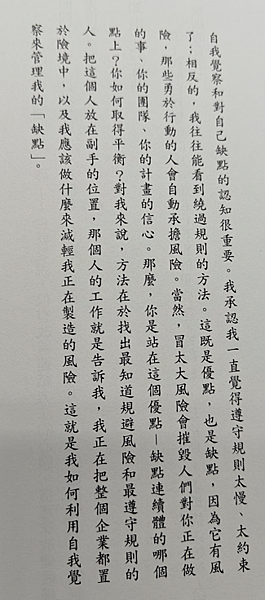 自我覺察和對自己缺點的認知很重要。我承認我一直覺得遵守規則太慢、太約束
了；相反的，我往往能看到繞過規則的方法。這既是優點，也是缺點，因為它有風
險，那些勇於行動的人會自動承擔風險。當然，冒太大風險會摧毀人們對你正在做
的事、你的團隊、你的計畫的信心。那麼，你是站在這個優點—缺點連續體的哪個
點上？你如何取得平衡？對我來說，方法在於找出最知道規避風險和最遵守規則的
人。把這個人放在副手的位置，那個人的工作就是告訴我，我正在把整個企業都置
於險境中，以及我應該做什麼來減輕我正在製造的風險。這就是我如何利用自我覺
察來管理我的「缺點」。